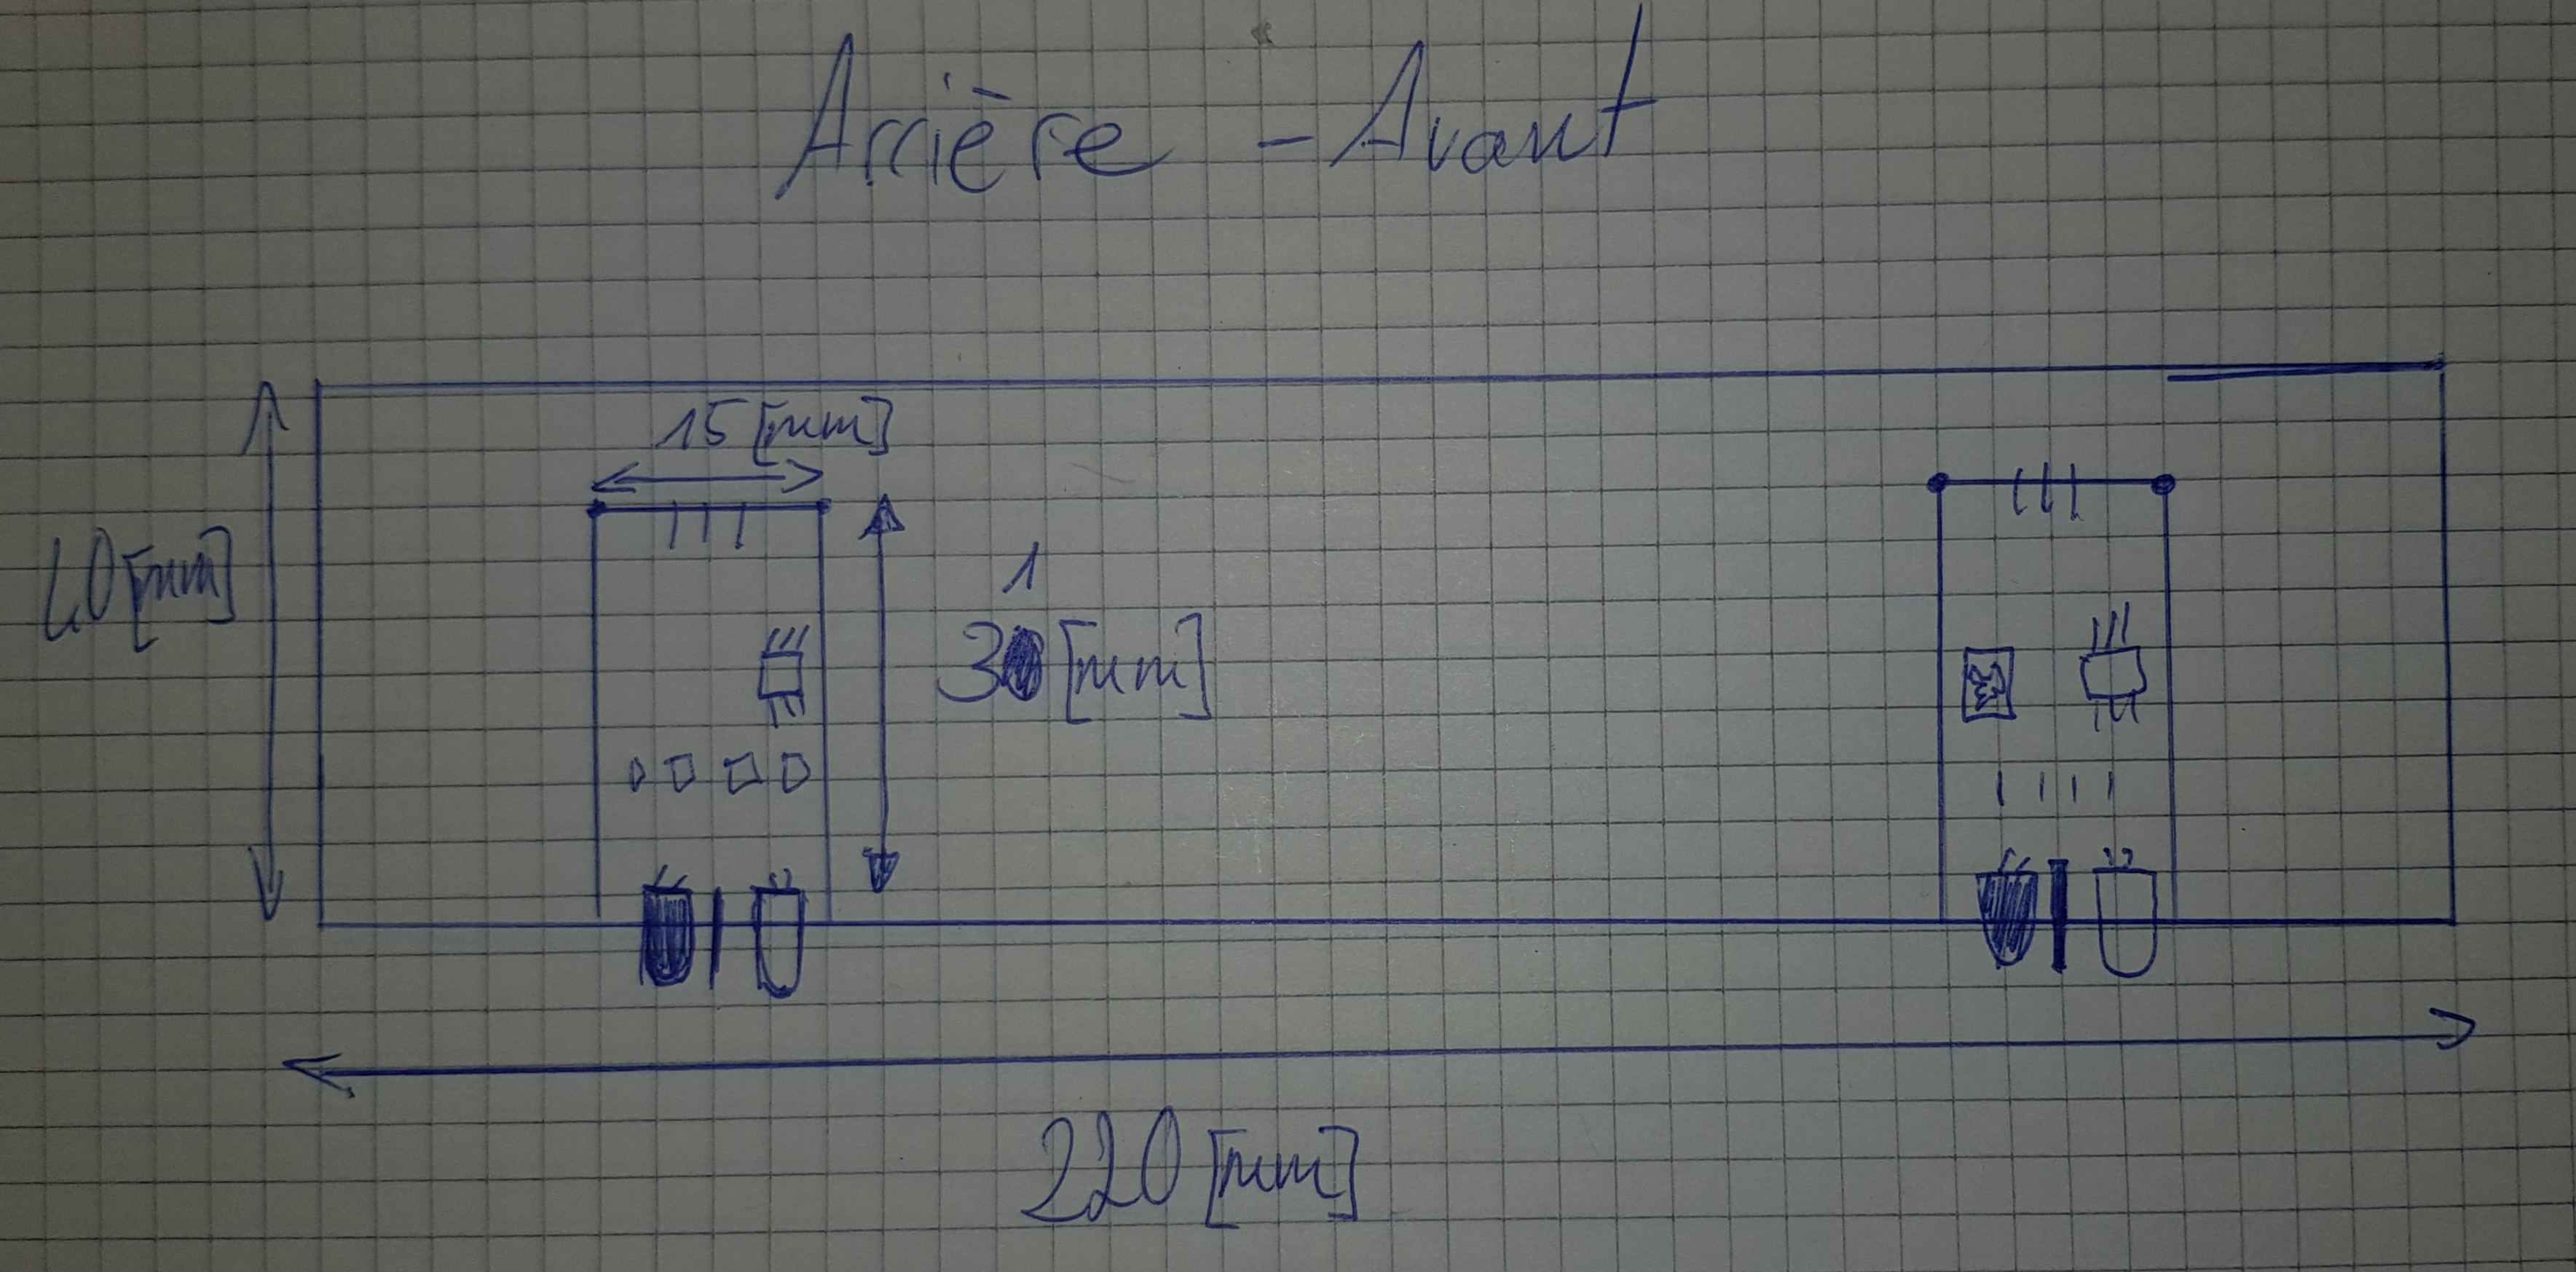 Arrière - Avant
15[mm]
40[mm]
1
3 [mm]
220[mm]